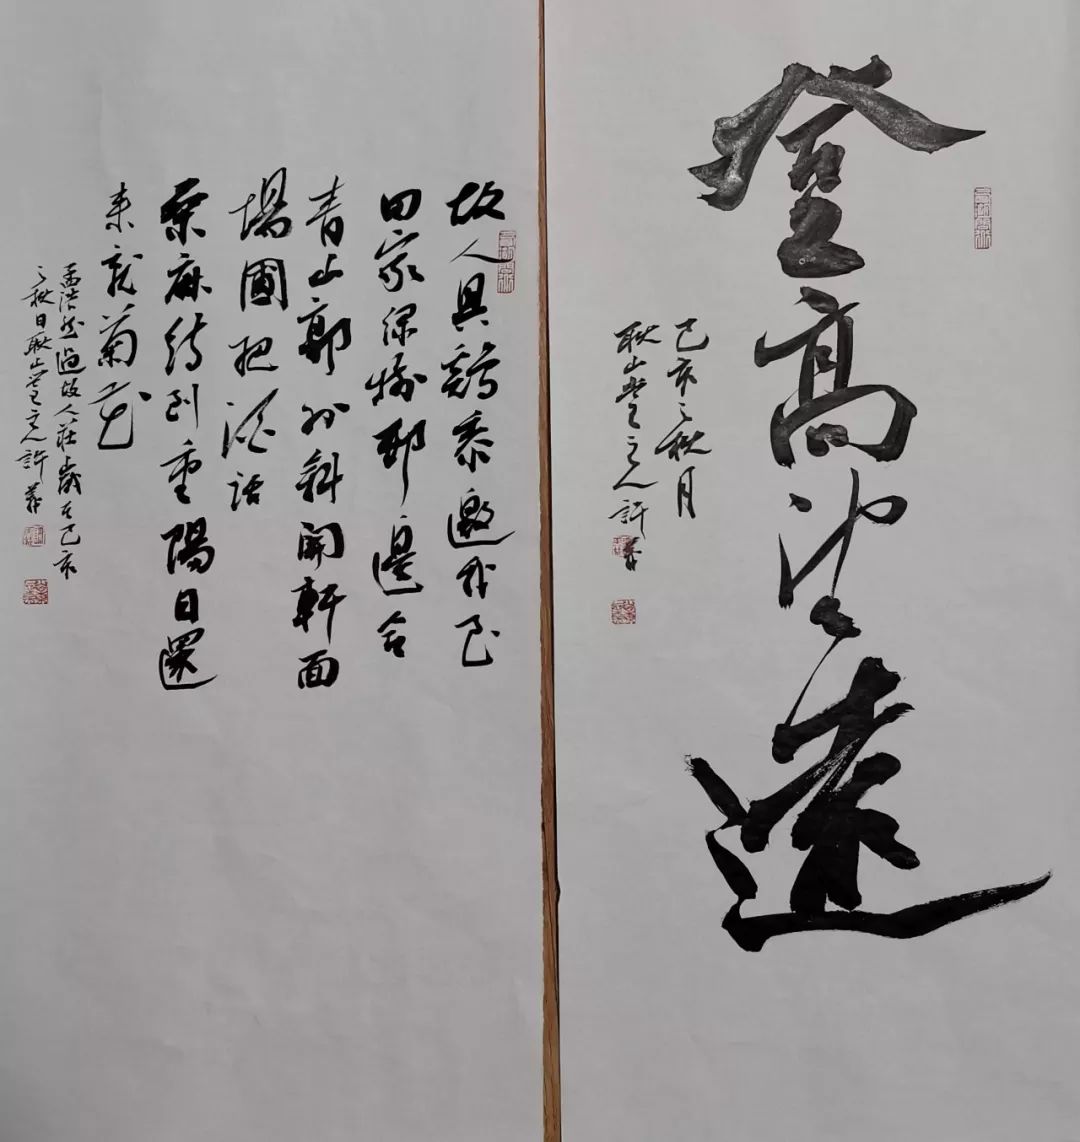 登高望遠
己亥之秋月
耿山堂主人許
故人具鷄黍邀我至
田家綠樹邨邊合
青山郭外斜開軒面
場圃把酒話
桒麻待到重陽日還
来就菊花
孟浩然過故人莊歲在己亥
之秋日耿山堂主人許